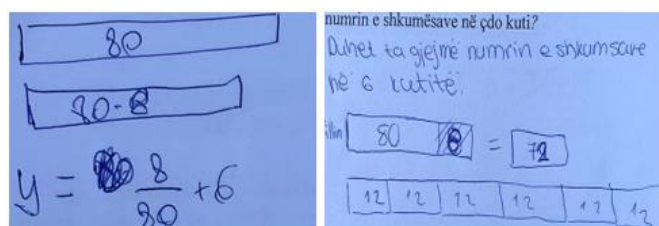 80
80-8
y = 8/80 + 6
numrin e shkumësave në çdo kuti?
Duhet ta gjejmë numrin e shkumsave
në 6 kutitë.
80 8 = 72
12 12 12 12 12 12